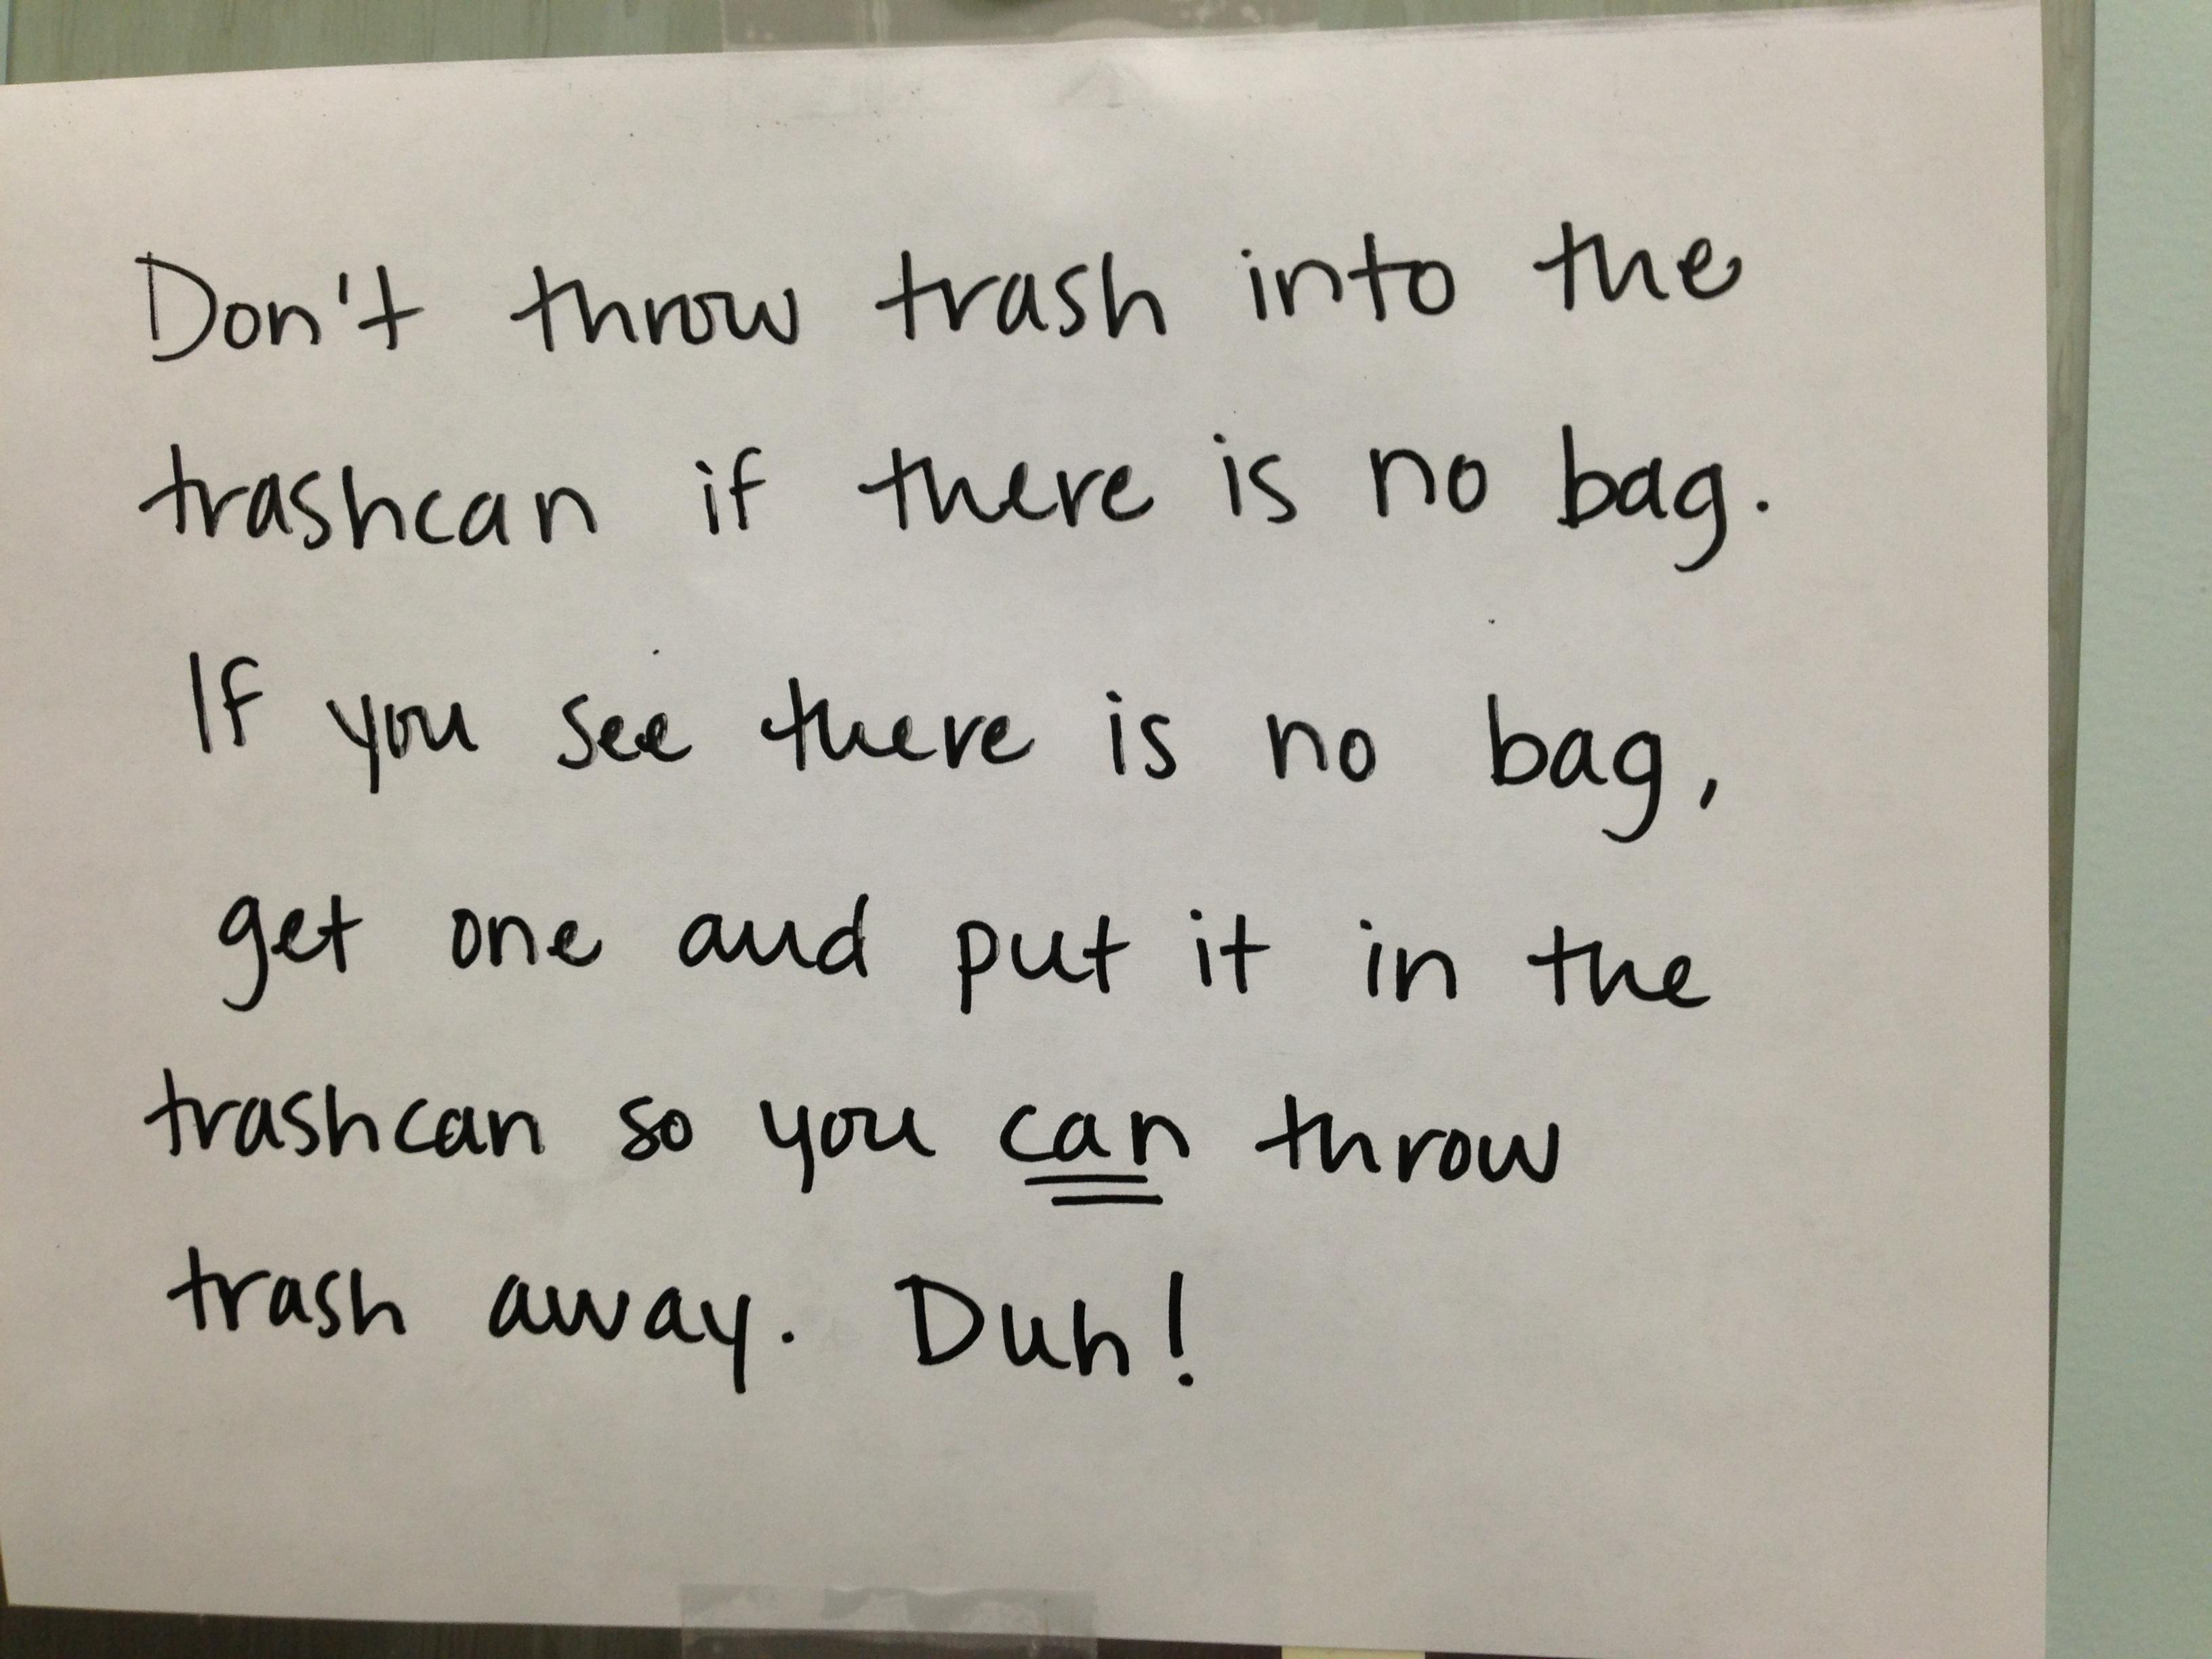 Don't throw trash into the
trashcan if there is no bag.
If you see there is no bag,
get one and put it in the
trashcan so you can throw
trash away. Duh!